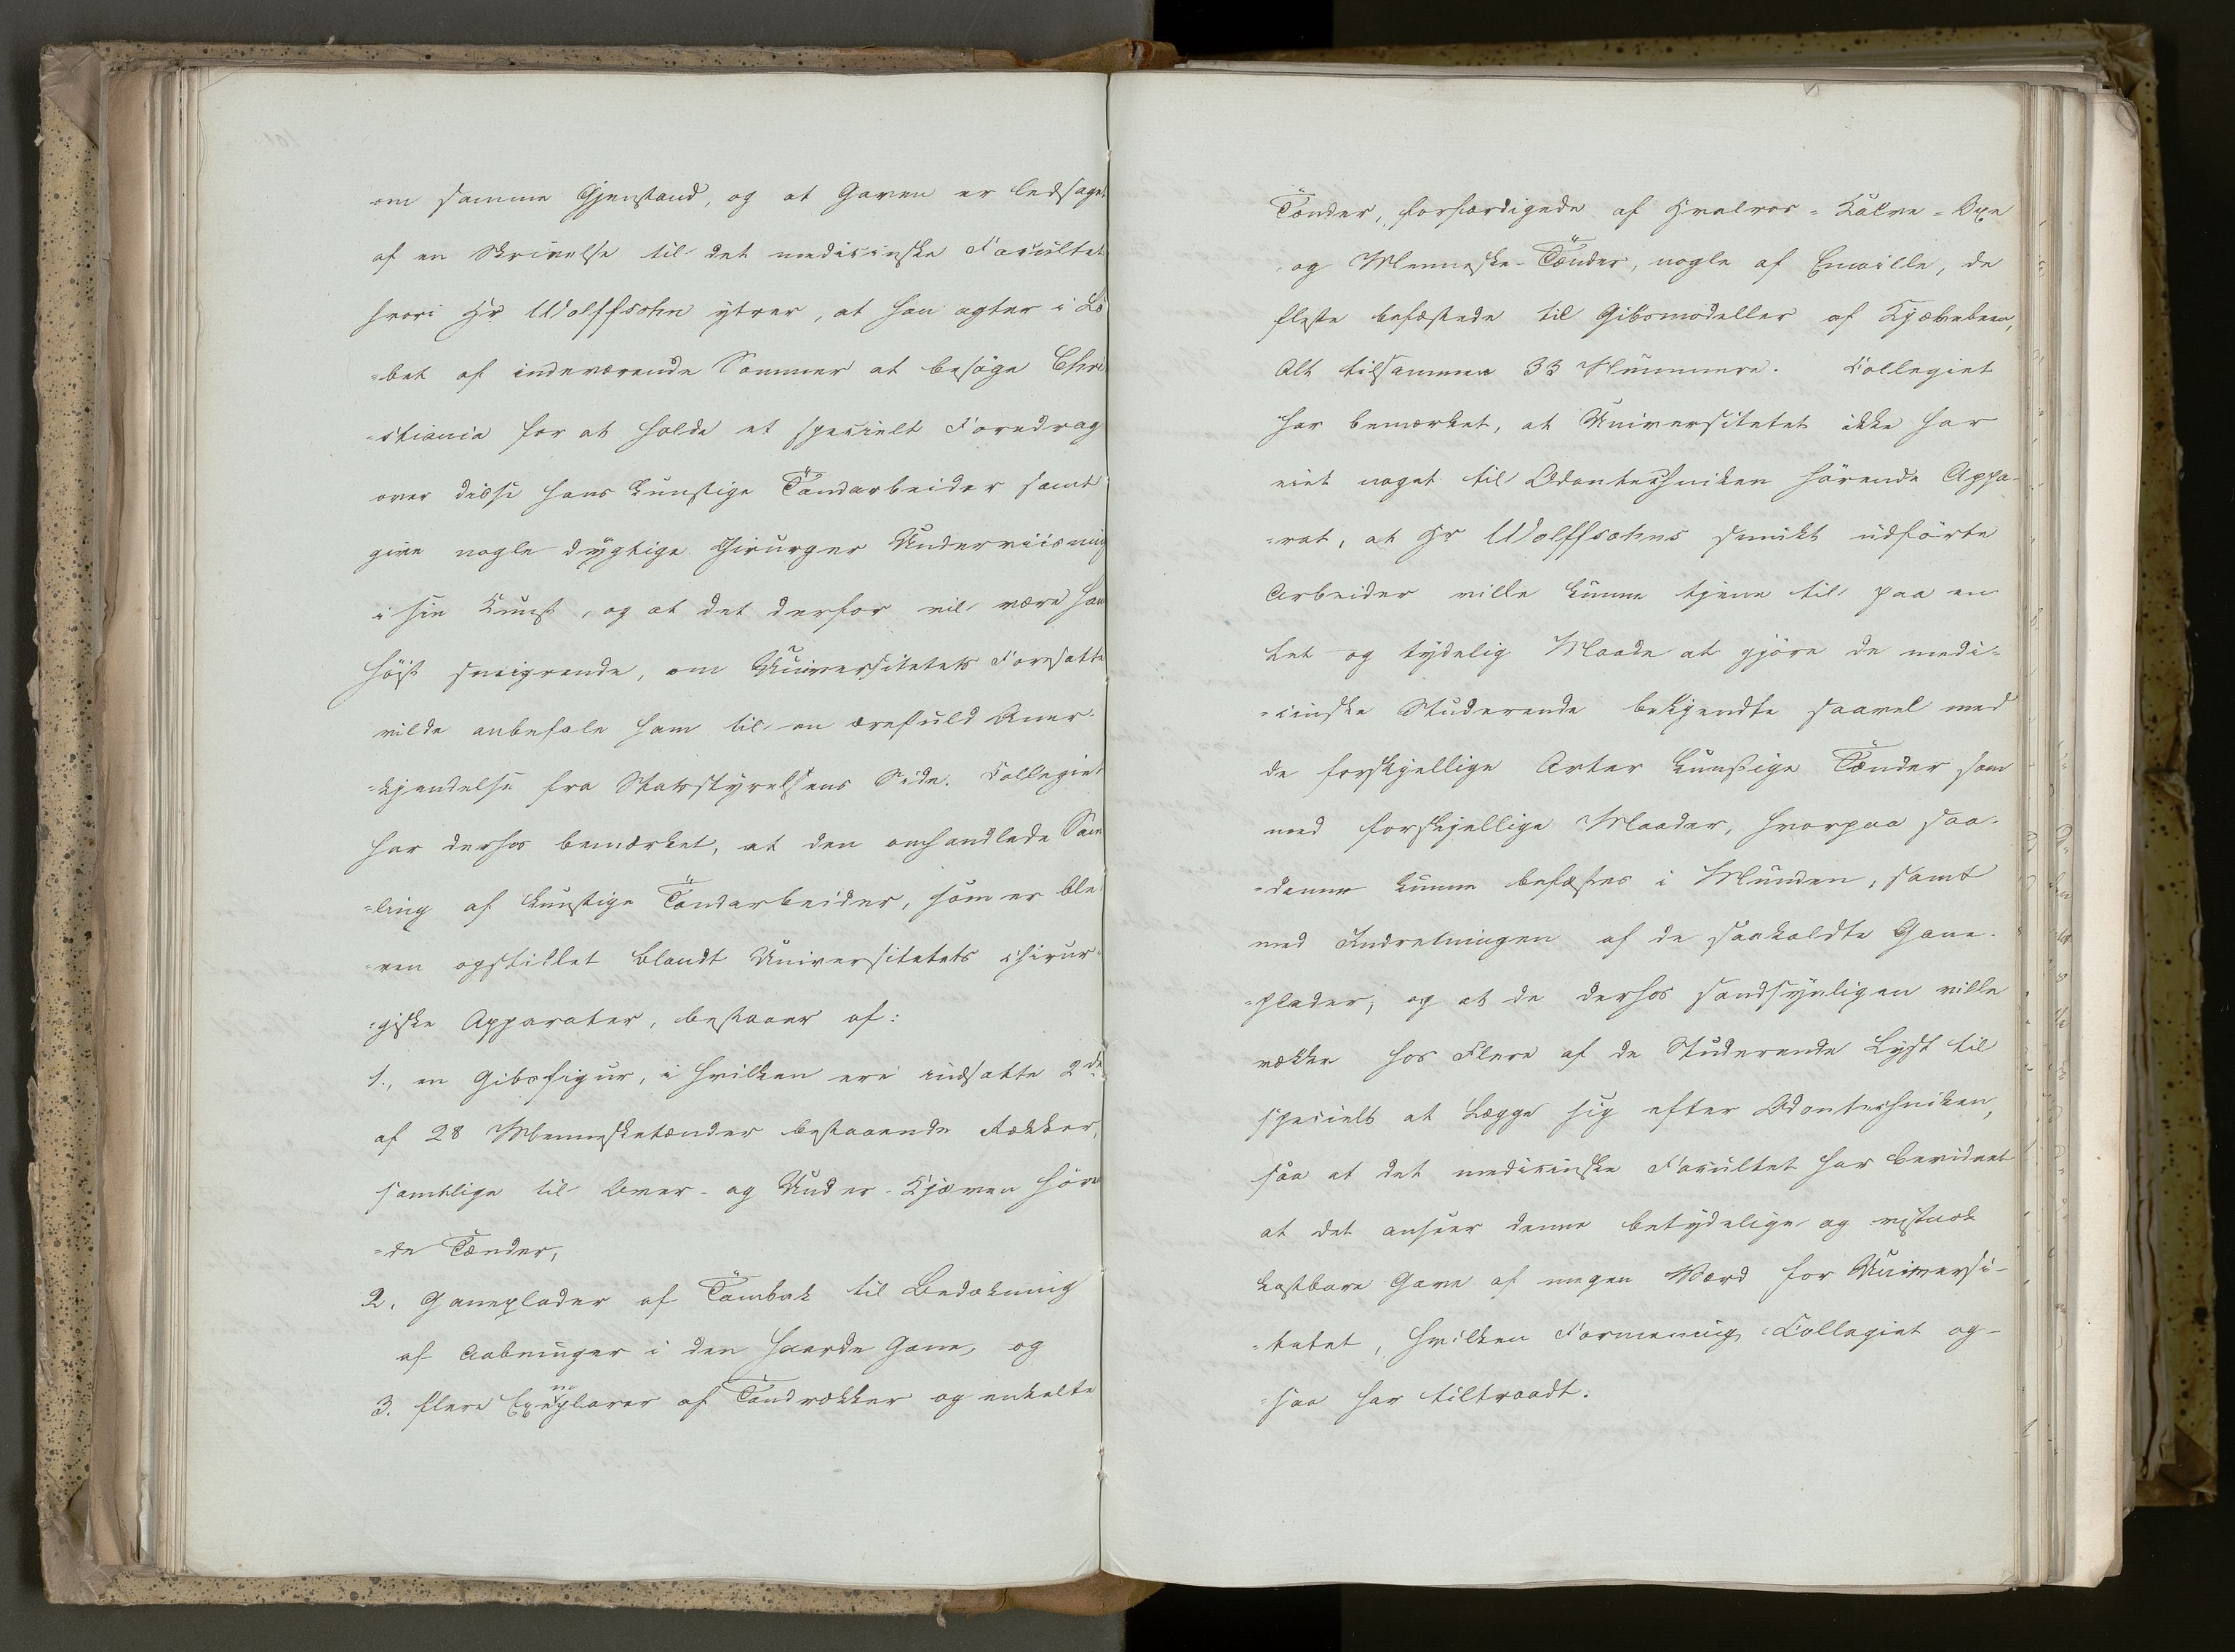 om samme Gjenstand, og at Gaven er ledsaget
af en Skrivelse til det medicinske Facultet
hvori Hr Wolffsohn ytrer, at han agter i Lö
=bet af indeværende Sommer at besöge Chri
=stiania for at holde et specielt Foredrag
over disse hans kunstige Tandarbeider samt
give nogle dygtige Chirurger Underviisning
i sin Kunst, og at det derfor vil være ham
höist smigrende, om Universitetets Foresatte
vilde anbefale ham til en ærefuld Aner-
=kjendelse fra Statsstyrelsens Side. Collegiet
har derhos bemærket, at den omhandlede Sam
=ling af kunstige Tandarbeider, som er ble
=ven opstillet blandt Universitetets chirur=
=giske Apparater, bestaaer af:
1., en Gibsfigur, i hvilken ere indsatte 2de
af 28 Mennesketænder bestaaende Rækker,
samtlige til Over- og Under-Kjæven höre
=de Tænder,
2. Ganeplader af Tombak til Bedækning
af Aabninger i den haarde Gane, og
3. flere Exemplarer af Tandrækker og enkelte
Tænder, forfærdigede af Hvalros- Kalve- Oxe
og Menneske-Tænder, nogle af Emaille, de
fleste befæstede til Gibsmodeller af Kjæbeben,
Alt tilsammen 33 Nummere. Collegiet
har bemærket, at Universitetet ikke har
eiet noget til Odontechniken hörende Appa-
=rat, at Hr Wolffsohns smukt udförte
Arbeider ville kunne tjene til paa en
let og tydelig Maade at gjöre de medi=
=cinske Studerende bekjendte saavel med
de forskjellige Arter kunstige Tænder som
med forskjellige Maader, hvorpaa saa-
=danne kunne befæstes i Munden, samt
med Indretningen af de saakaldte Gane-
=plader, og at de derhos sandsynligen ville
vække hos Flere af de Studerende Lyst til
specielt at lægge sig efter Odontechniken,
saa at det medicinske Facultet har bevidnet
at det anseer denne betydelige og vistnok
kostbare Gave af megen Værd for Universi-
=tetet, hvilken Formening Collegiet og-
=saa har tiltraadt.